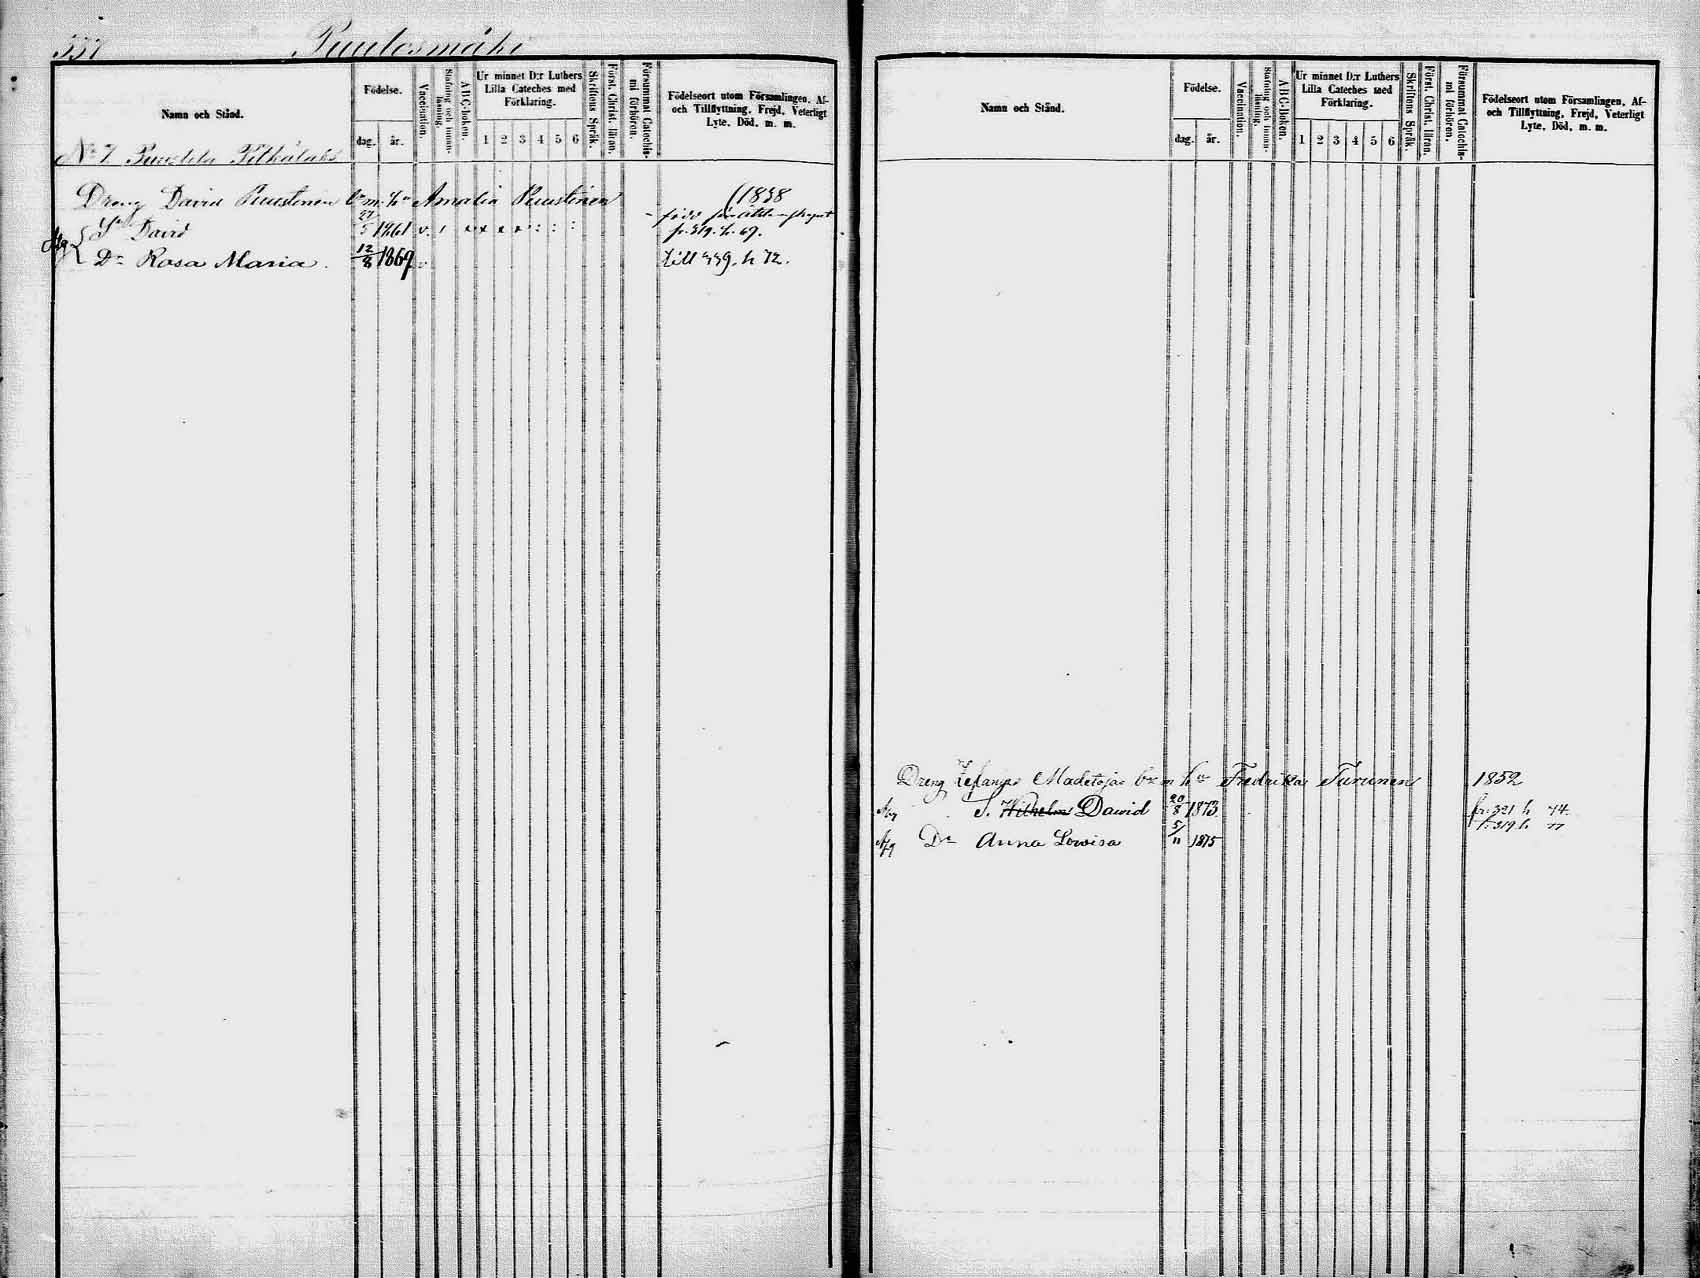 337 Puulosmäki
Namn och Stånd.
Födelse.
dag. år.
Vaccination.
Stafning och innan-läsning.
A-B-C-boken.
Ur minnet D:r Luthers Lilla Cateches med Förklaring.
1 2 3 4 5 6
Skriftens Språk.
Först. Christ. läran.
Försummat Catechismi förhören.
Födelseort utom Församlingen, Af- och Tillflyttning, Frejd, Veterligt Lyte, Död, m. m.
No 7 Puustila Pitkälaks
Dreng David Puustinen Amalia Puustinen (1838
Sn David 27/5 1861 v. fr. 319. h. 69.
Dr Rosa Maria. 12/8 1869 v till 339. h 72.
Namn och Stånd.
Födelse.
dag. år.
Vaccination.
Stafning och innan-läsning.
A-B-C-boken.
Ur minnet D:r Luthers Lilla Cateches med Förklaring.
1 2 3 4 5 6
Skriftens Språk.
Först. Christ. läran.
Försummat Catechismi förhören.
Födelseort utom Församlingen, Af- och Tillflyttning, Frejd, Veterligt Lyte, Död, m. m.
Dreng Zefanias Madetoja hu Fredrika Turunen 1852
S. Wilhelm Dawid 20/8 1873 fr. 321 h 74.
t. 319 h. 77
Dr Anna Lowisa 5/11 1875